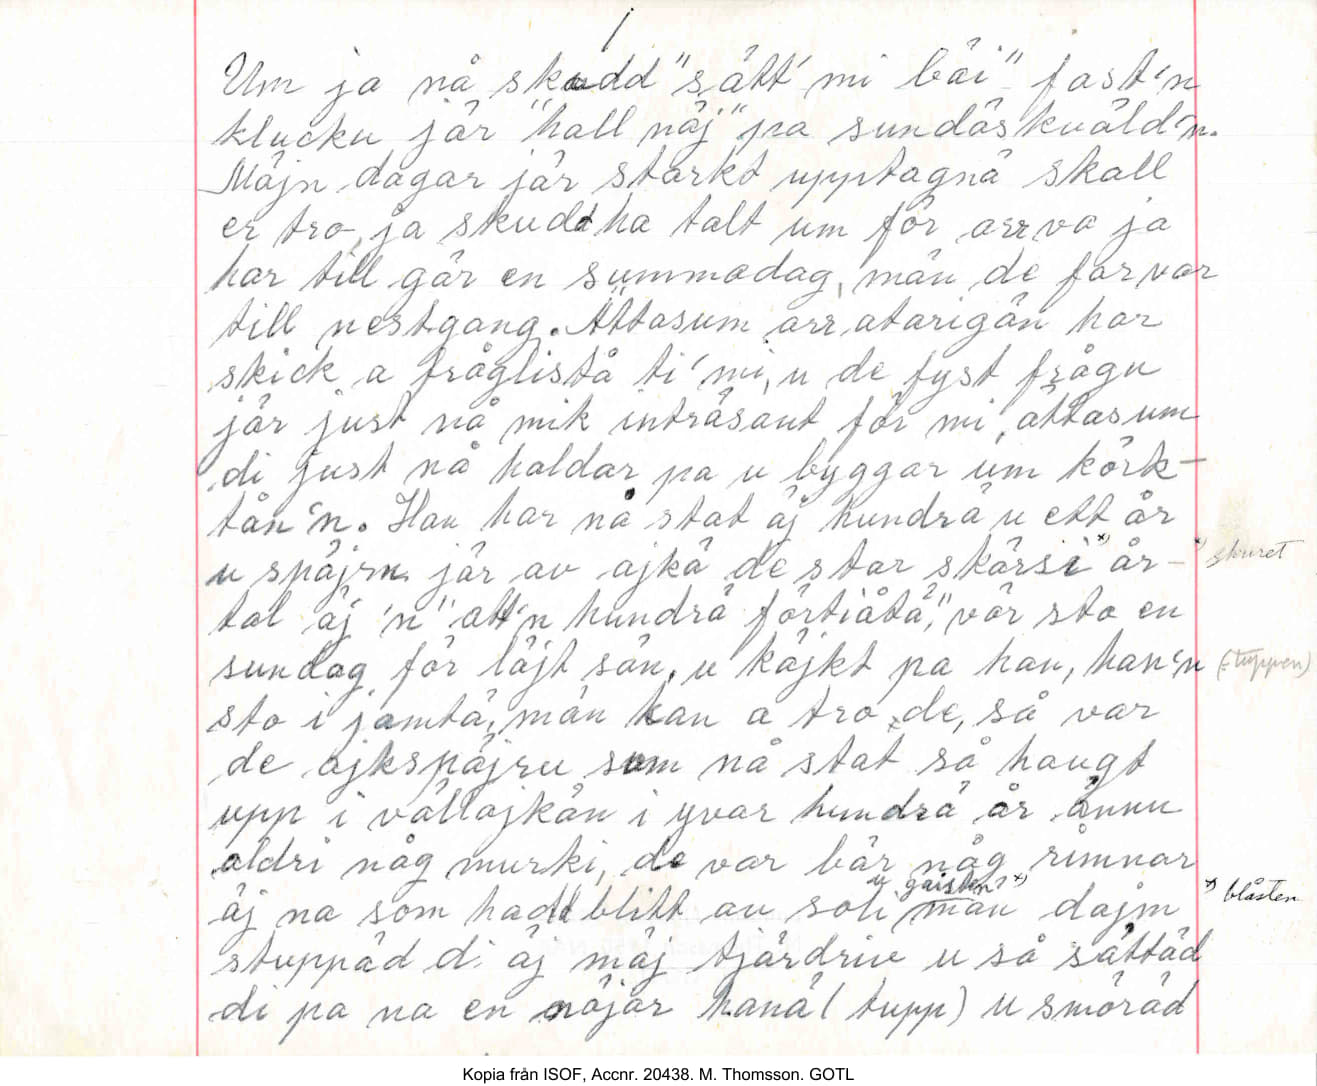 1
Um ja nå skudd "sätt' mi bäi" fast'n
klucku jär "hall näj" pa sundåskväld'n.
Mäjn dagar jär starkt upptagnä skall
er tro, ja skudd ha talt um för arrva ja
har till gär en summadag, män de far var
till nestgang. Ättasum arr atarigän har
skick a fråglistå ti' mi, u de fyst frågu
jär just nå mik inträsant för mi, ättasum
di just nå haldar pa u byggar um körk-
tån'n. Han har nå stat äj hundrä u ett år
u späjru jär av ajkä de star skärsi *) år-
*) skuret
tal äj 'n" att'n hundrä förtiåtå", vör sto en
sundag för läjt sän, u käjkt pa han, han'n
(= tuppen)
sto i jamtä, män kan a tro de, så var
de ajkspäjru sum nå stat så haugt
upp i vällajkån i yvar hundrä år ännu
aldri någ murki, de var bär någ rimnar
äj na som hadd blitt av soli u gaisten *) män dajm
*) blåsten
stuppäd di äj mäj tjärdriv u så sättäd
di pa na en nöjar hanä (tupp) u smöräd
Kopia från ISOF, Accnr. 20438. M. Thomsson. GOTL